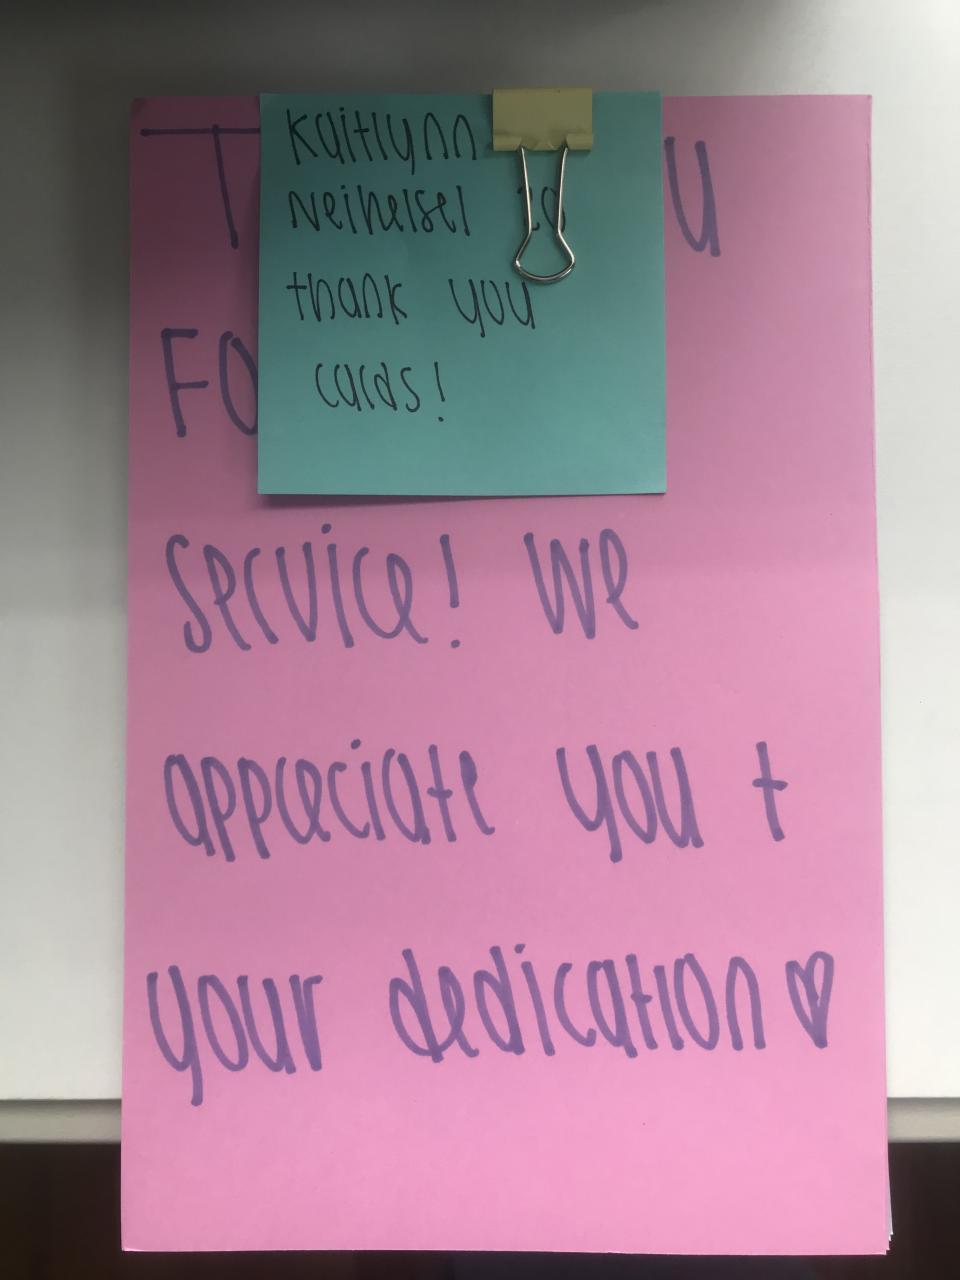 Kaitlynn
Neiheisel 20
thank you
cards!
T U
FO
service! We
appreciate you +
your dedication